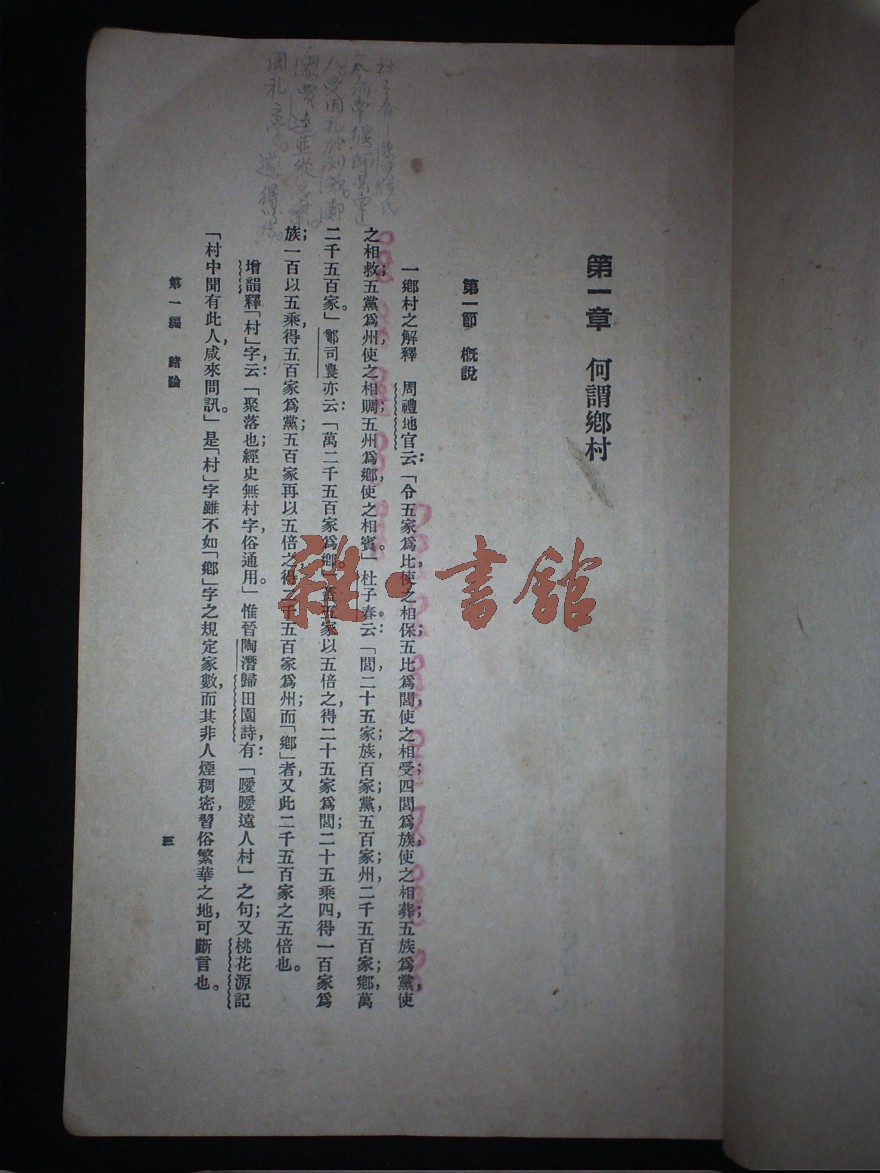 第一章 何謂鄉村
第一節 概說
一鄉村之解釋 周禮地官云：「令五家爲比，使之相保；五比爲閭，使之相受；四閭爲族，使之相葬；五族爲黨，使
之相救；五黨爲州，使之相賙；五州爲鄉，使之相賓」杜子春云：「閭二十五家，族百家；黨五百家；州二千五百家；鄉萬
二千五百家。」鄭司農亦云：「萬二千五百家爲鄉」蓋五家以五倍之，得二十五家爲閭；二十五乘四，得一百家爲
族；一百以五乘，得五百家爲黨；五百家再以五倍之得二千五百家爲州；而「鄉」者，又此二千五百家之五倍也。
增韻釋「村」字云：「聚落也；經史無村字，俗通用。」惟晉陶潛歸田園詩，有：「曖曖遠人村」之句；又桃花源記
「村中聞有此人，咸來問訊。」是「村」字雖不如「鄉」字之規定家數，而其非人煙稠密，習俗繁華之地，可斷言也。
第一編 緒論
三
雜·書館